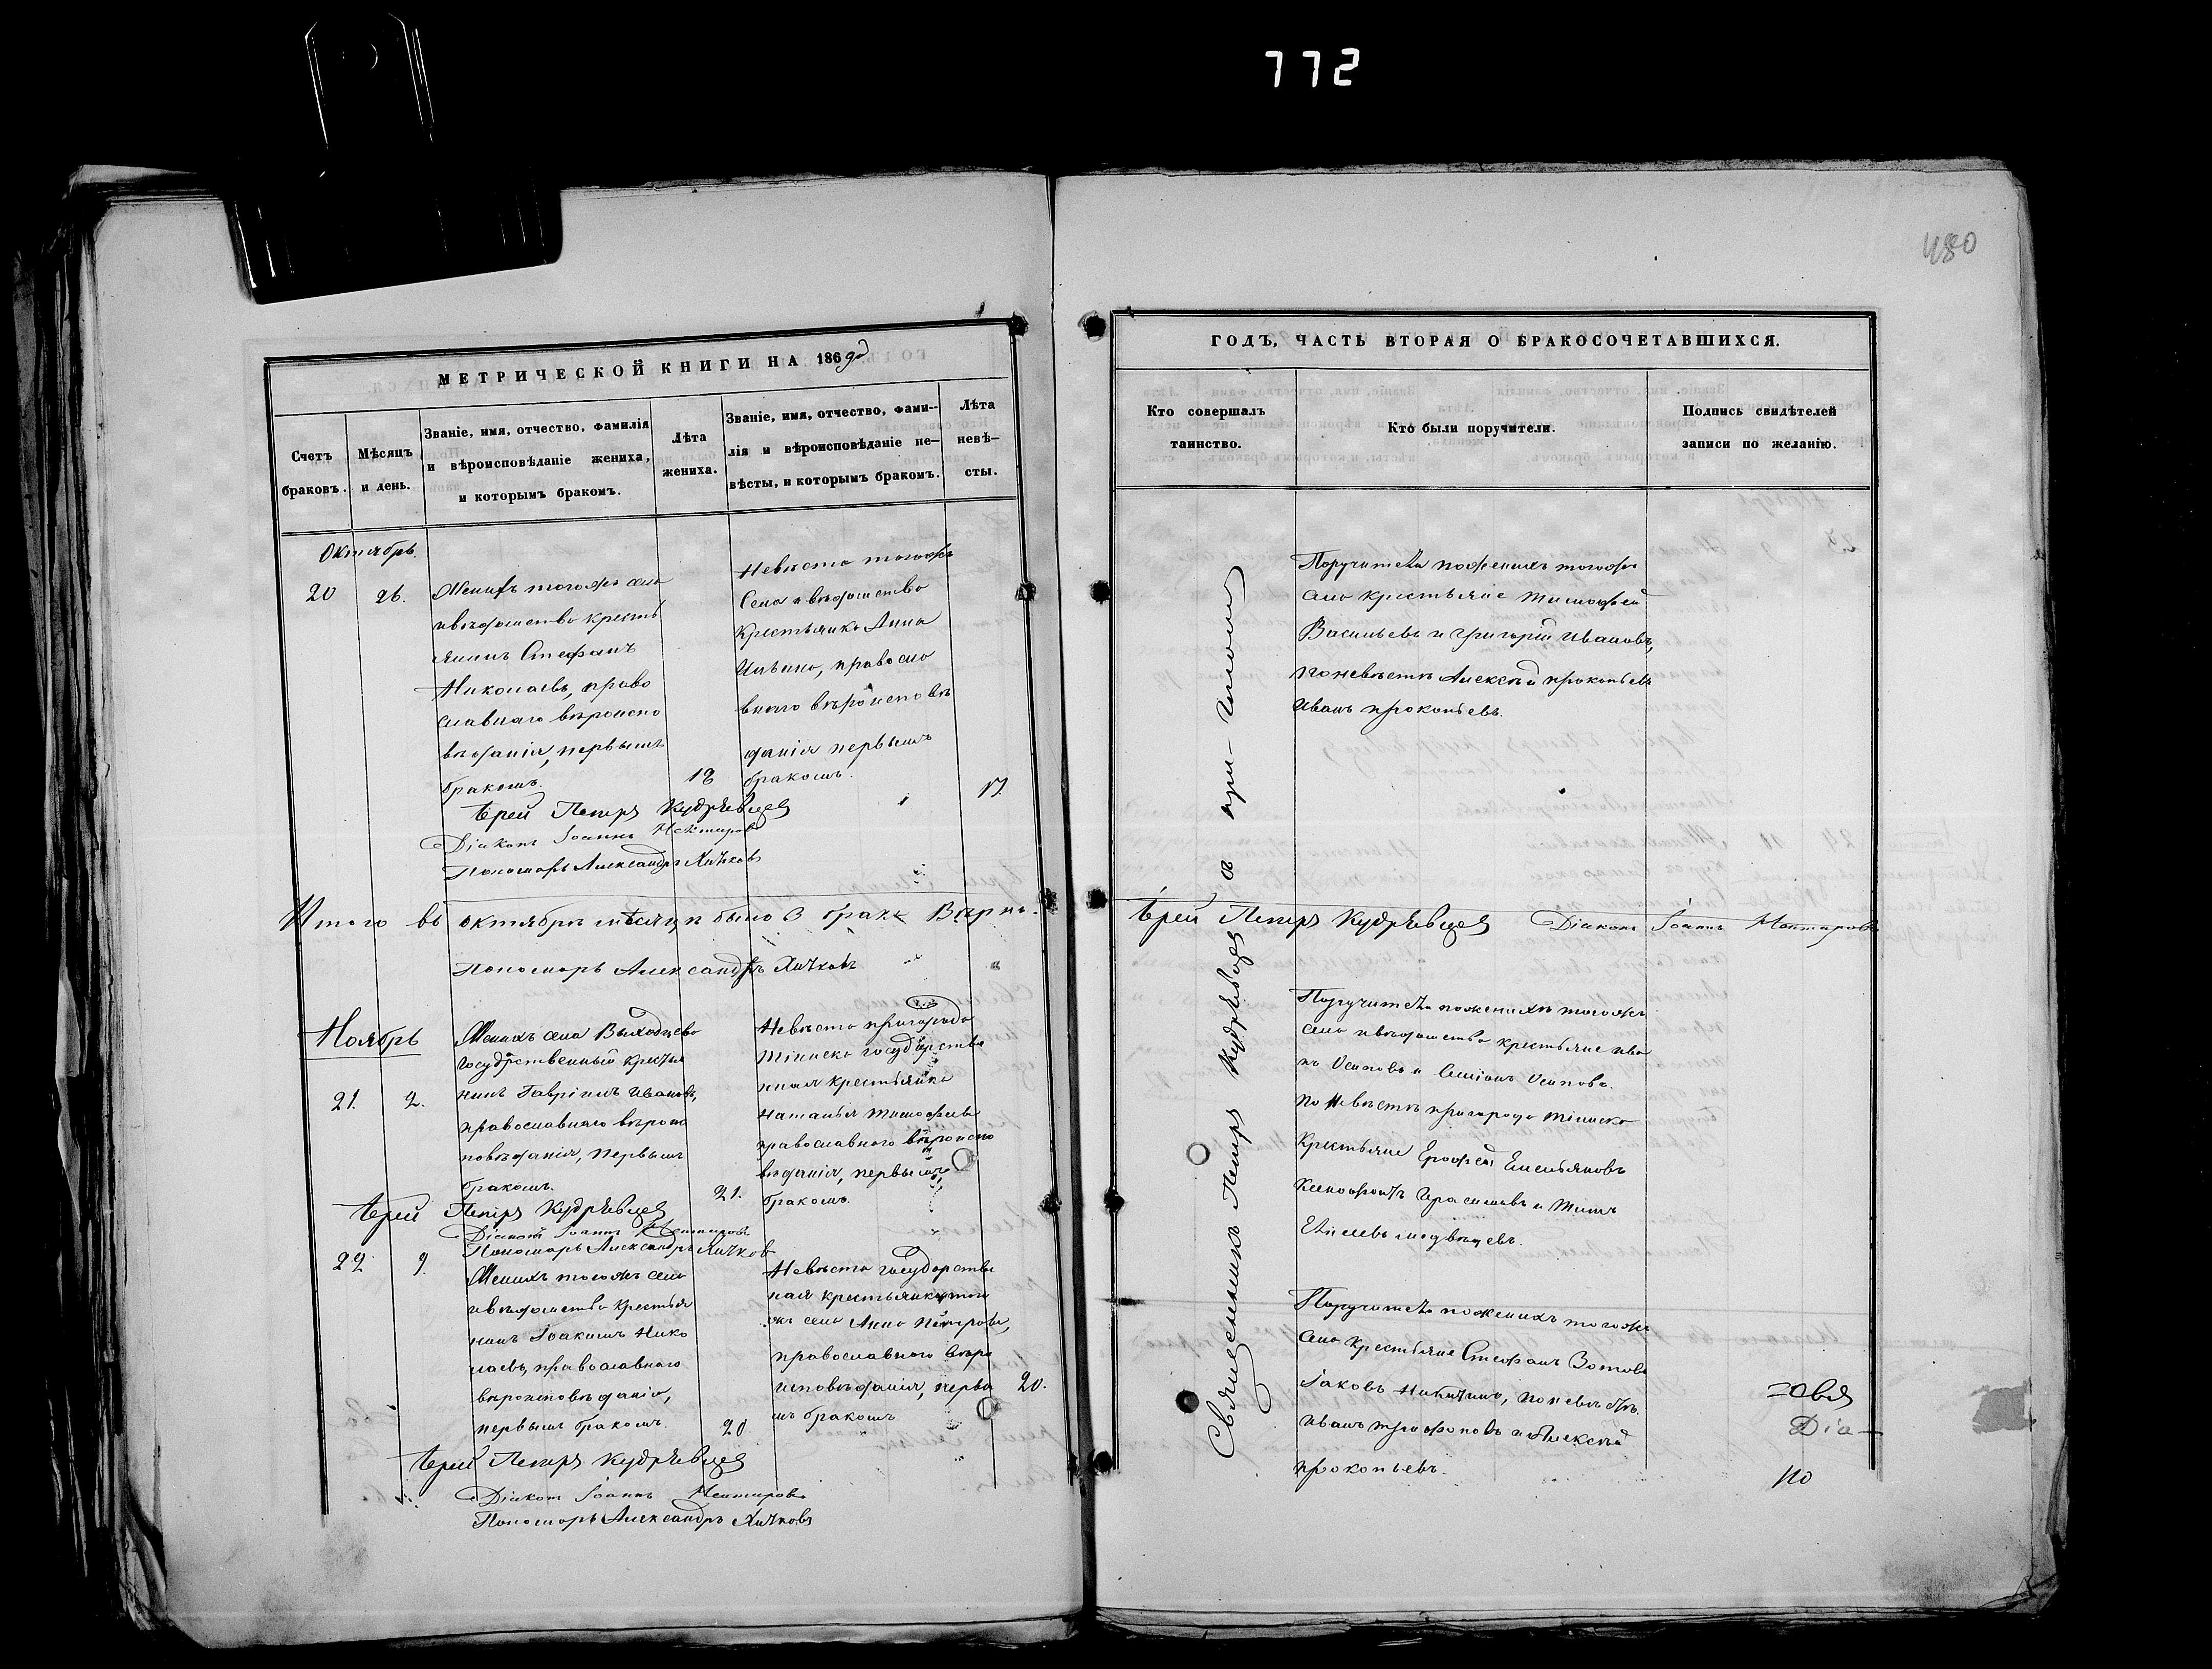 772
480
МЕТРИЧЕСКОЙ КНИГИ НА 1869й
Счетъ браковъ.
Мѣсяцъ и день.
Званіе, имя, отчество, фамилія
и вѣроисповѣданіе жениха,
и которымъ бракомъ.
Лѣта жениха.
Званіе, имя, отчество, фами--
лія и вѣроисповѣданіе не--
вѣсты, и которымъ бракомъ.
Лѣта невѣ--
сты.
Октябрь.
20
26.
Женихъ тогожъ села
и вѣдомства кресть
янинъ Стефанъ
Николаевъ, право
славнаго вѣроиспо
вѣданія, первымъ
бракомъ.
18
Невѣста тогожъ
села и вѣдомства
крестьянка Анна
Ильина, правосла
внаго вѣроисповѣ
данія первымъ
бракомъ.
17.
Іерей Петръ Кудрявцев
Діаконъ Іоаннъ
Пономарь Александръ Хичков
Итого въ октябрѣ мѣсяцѣ было 3 брак Вѣрно.
Пономарь Александръ Хичковъ
Ноябрь
21.
2.
Женихъ села Выходцева
Государственный крестья
нинъ Гавріилъ Ивановъ,
православнаго вѣроис
повѣданія, первымъ
бракомъ.
21.
Невѣста пригорода
Тіинска государстве
нная крестьянка
Наталія Тимофѣева
православнаго вѣроиспо
вѣданія, первымъ
бракомъ.
Іерей Петръ Кудрявцев
Діаконъ Іоаннъ
Пономарь Александръ Хичков
22
9.
Женихъ тогожъ села
и вѣдомства крестья
нинъ Іоакимъ Нико
лаевъ, православнаго
вѣроисповѣданія,
первымъ бракомъ.
20
Невѣста государстве
ная крестьянка того
жъ села Анна Петрова,
православнаго вѣро
исповѣданія, первы
мъ бракомъ
20.
Іерей Петръ Кудрявцев
Діаконъ Іоаннъ
Пономарь Александръ Хичковъ
ГОДЪ, ЧАСТЬ ВТОРАЯ О БРАКОСОЧЕТАВШИХСЯ.
Кто совершалъ
таинство.
Кто были поручители.
Подпись свидѣтелей
записи по желанію.
Священникъ Петръ Кудрявцев а при-
Поручители по женихѣ тогожъ
села крестьяне Тимофей
Васильевъ и Григорій Ивановъ,
по невѣстѣ Алексѣй Прокопьевъ
Иванъ Прокопьевъ.
Іерей Петръ Кудрявцев Діаконъ Іоаннъ
Поручители по женихѣ тогожъ
села и вѣдомства крестьяне Ива
нъ Осиповъ и Симіонъ Осиповъ.
По невѣстѣ пригорода Тіинска
крестьяне Ерофей Емельяновъ
Ксенофонтъ Герасимовъ и Титъ
Медвѣдевъ.
Поручители по женихѣ тогожъ
села крестьяне Стефанъ Зотовъ
Іаковъ Никитинъ, по невѣстѣ.
Иванъ Трофимовъ и Алексѣй
Прокопьевъ.
Діа-
по